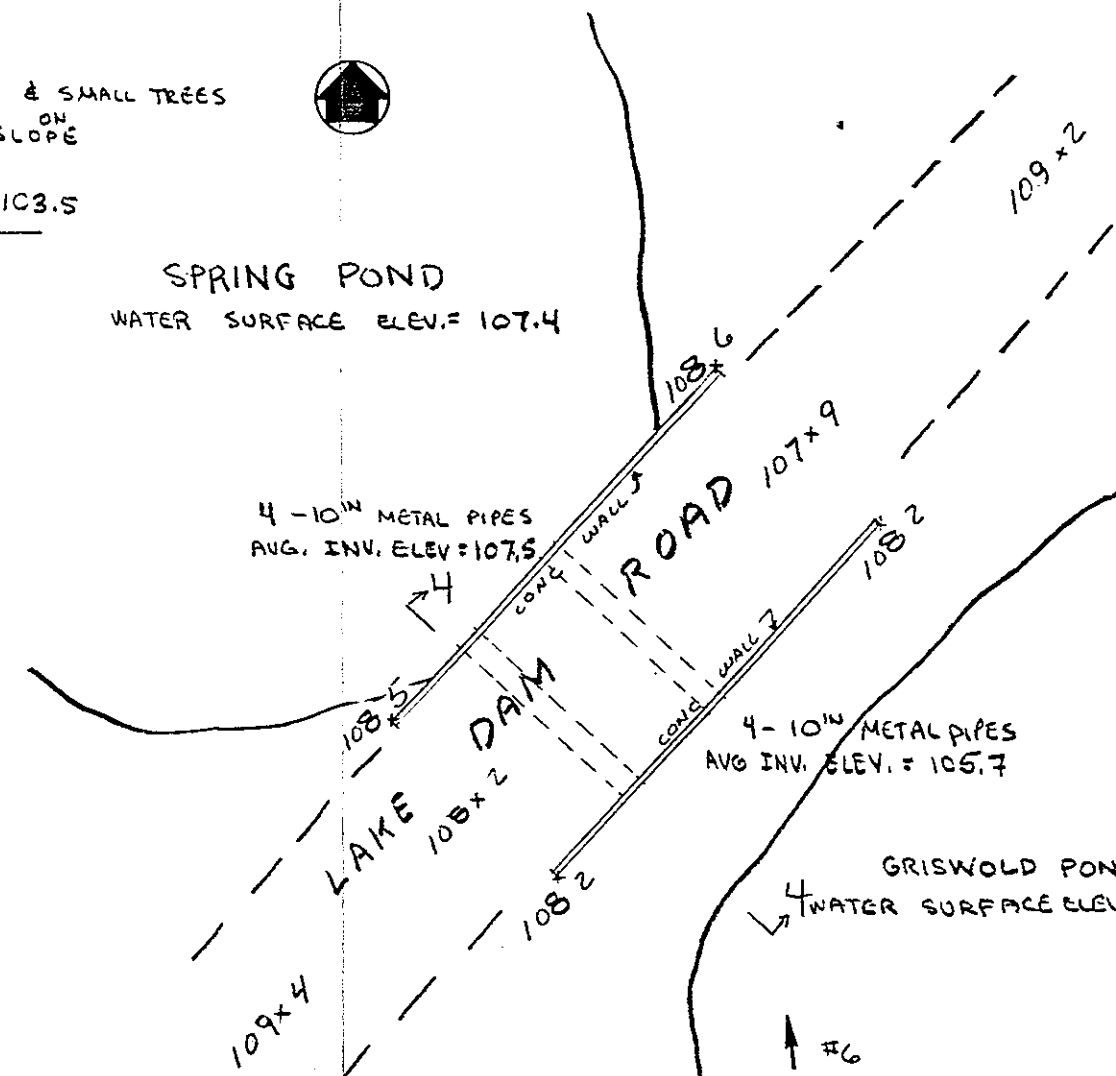 & SMALL TREES
ON
SLOPE
103.5
SPRING POND
WATER SURFACE ELEV.= 107.4
109 x 2
108 x 6
4 - 10 IN METAL PIPES
AVG. INV. ELEV = 107.5
CONC WALL
ROAD
107 x 9
108 x 2
4
108 x 5
LAKE DAM
CONC WALL
4 - 10 IN METAL PIPES
AVG INV. ELEV. = 105.7
108 x 2
108 x 2
GRISWOLD PON
4
WATER SURFACE ELEV
109 x 4
#6